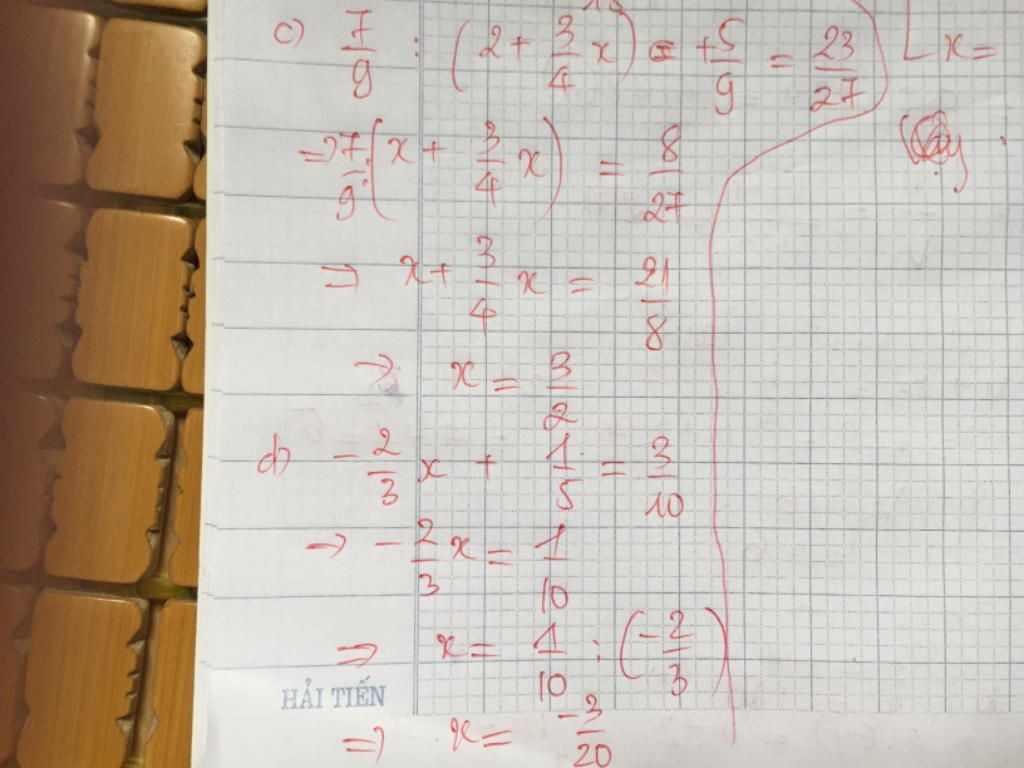 c) 7/9 : (2 + 3/4 x) + 5/9 = 23/27
=> 7/9 : (x + 3/4 x) = 8/27
=> x + 3/4 x = 21/8
=> x = 3/2
d) - 2/3 x + 1/5 = 3/10
=> - 2/3 x = 1/10
=> x = 1/10 : (-2/3)
=> x = -3/20
x =
HẢI TIẾN